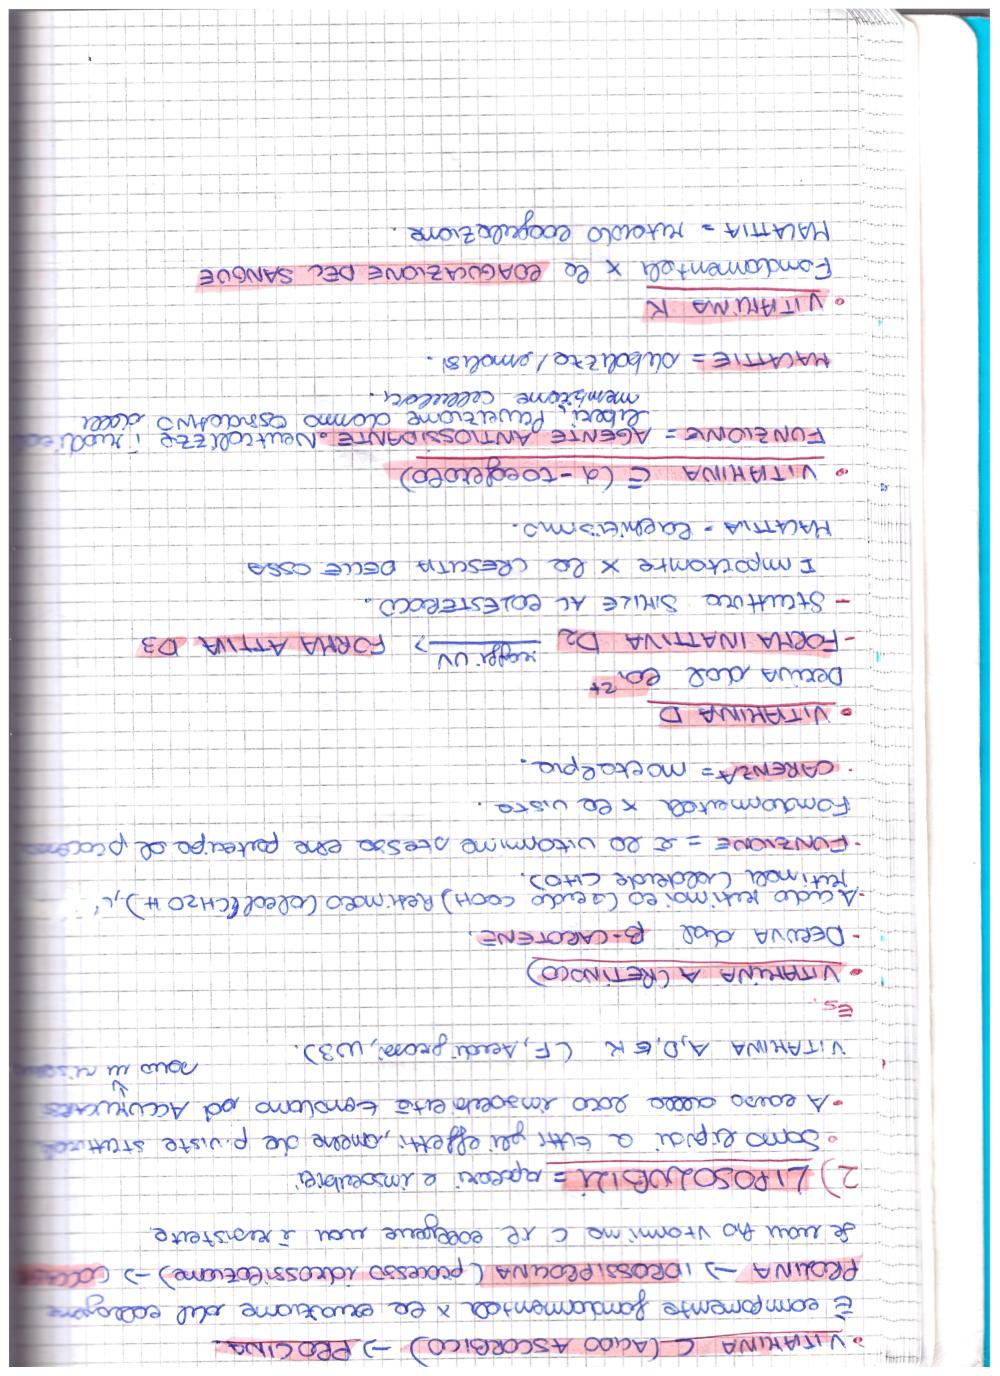 • VITAMINA C (ACIDO ASCORBICO) → PROLINA.
È componente fondamentale x la creazione del collagene
PROLINA → IDROSSIPROLINA (processo idrossilazione) →
Se non ho vitamina C il collagene non è resistente
2) LIPOSOLUBILI = apolari e insolubili
• Sono lipidi a tutti gli effetti, anche da p. viste strutturale
• A causa della loro insolubilità tendono ad ACCUMULARSI
VITAMINA A, D, E K (F, Acidi grassi, W3).
Es.
• VITAMINA A (RETINOLO)
- DERIVA dal β-CAROTENE.
- Acido retinoico (acido COOH) Retinolo (alcol CH2OH),
Retinale (aldeide CHO).
- FUNZIONE = è la vitamina stessa che partecipa al processo
Fondamentale x la vista.
• CARENZA = miotalpia.
• VITAMINA D
DERIVA dal
- FORMA INATTIVA D2 raggi UV → FORMA ATTIVA D3
- Struttura SIMILE AL COLESTEROLO.
Importante x la CRESCITA DELLE OSSA
MALATTIA = rachitismo.
• VITAMINA E (α-tocoferolo)
FUNZIONE = AGENTE ANTIOSSIDANTE. Neutralizza i radicali
liberi, Prevenzione danno ossidativo delle
membrane cellulari.
MALATTIE = / emolisi.
• VITAMINA K
Fondamentale x la COAGULAZIONE DEL SANGUE
MALATTIA = ritardo coagulazione.